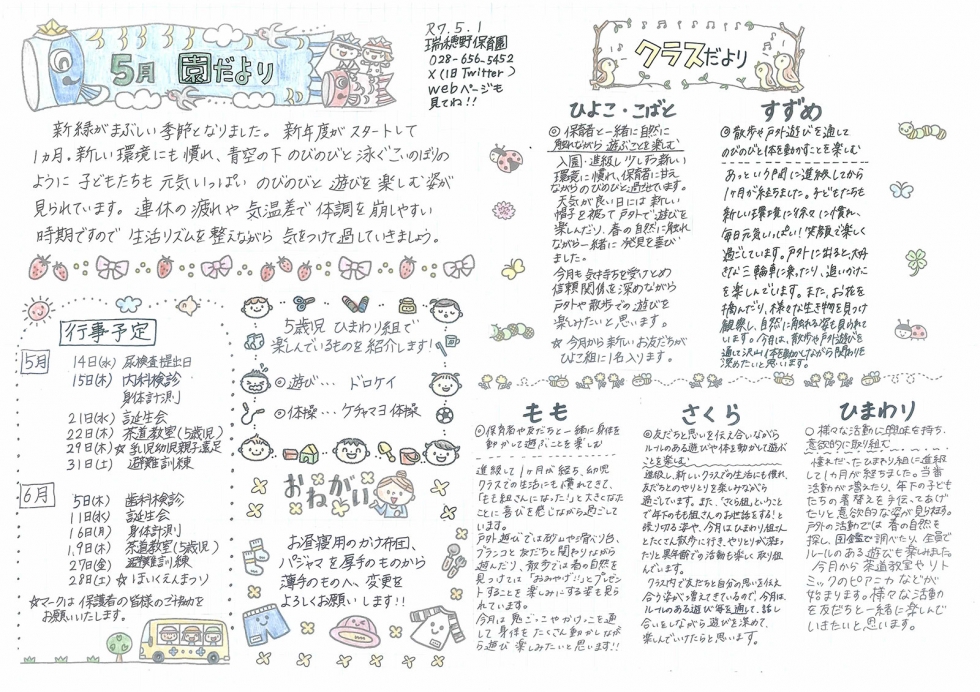 5月 園だより
R7.5.1
瑞穂野保育園
028-656-5452
X(旧Twitter)
webページも
見てね!!
新緑がまぶしい季節となりました。新年度がスタートして
1カ月。新しい環境にも慣れ、青空の下のびのびと泳ぐこいのぼりの
ように子どもたちも元気いっぱいのびのびと遊びを楽しむ姿が
見られています。連休の疲れや気温差で体調を崩しやすい
時期ですので生活リズムを整えながら気をつけて過していきましょう。
行事予定
5月
14日(水) 尿検査提出日
15日(木) 内科検診
身体計測
21日(水) 誕生会
22日(木) 茶道教室(5歳児)
29日(木)☆乳児幼児親子遠足
31日(土) 避難訓練
6月
5日(木) 歯科検診
11日(水) 誕生会
16日(月) 身体計測
19日(木) 茶道教室(5歳児)
27日(金) 避難訓練
28日(土) ☆ほいくえんまつり
☆マークは保護者の皆様のご協力を
お願いいたします。
5歳児 ひまわり組で
楽しんでいるものを紹介します!
◎遊び… ドロケイ
◎体操… ケチャマヨ体操
おねがい
お昼寝用のかけ布団、
パジャマを厚手のものから
薄手のものへ、変更を
よろしくお願いします!!
クラスだより
ひよこ・こばと
◎保育者と一緒に自然に
触れながら遊ぶことを楽しむ
入園・進級し少しずつ新しい
環境に慣れ、保育者に甘え
ながらのびのびと過せています。
天気が良い日には新しい
帽子を被って戸外で遊びを
楽しんだり、春の自然に触れ
ながら一緒に発見を喜び
ました。
今月も気持ちを受けとめ
信頼関係を深めながら
戸外や散歩での遊びを
楽しみたいと思います。
☆今月から新しいお友だちが
ひよこ組に1名入ります。
すずめ
◎散歩や戸外遊びを通して
のびのびと体を動かすことを楽しむ
あっという間に進級してから
1ヶ月が経ちました。子どもたちも
新しい環境に徐々に慣れ、
毎日元気いっぱい!笑顔で楽しく
過ごしています。戸外に出ると、大好
きな三輪車に乗ったり、追いかけっこ
を楽しんでいます。また、お花を
摘んだり、様々な生き物を見つけ
観察し、自然に触れる姿も見られて
います。今月は、散歩や戸外遊びを
通して沢山体を動かしながら関わりを
深めたいと思います。
もも
◎保育者や友だちと一緒に身体を
動かして遊ぶことを楽しむ
進級して1ヶ月が経ち、幼児
クラスでの生活にも慣れてきて、
「もも組さんになった!」と大きくなった
ことに喜びを感じながら過ごして
います。
戸外遊びでは砂山や滑り台、
ブランコと友だちと関わりながら
遊んだり、散歩では春の自然を
見つけては「おみやげ!」とプレゼン
トすることを楽しみにする姿も見ら
れています。
今月は鬼ごっこやかけっこを通
して身体をたくさん動かしなが
ら遊び楽しみたいと思います!!
さくら
◎友だちと思いを伝え合いながら
ルールのある遊びや体を動かして遊ぶ
ことを楽しむ
進級し、新しいクラスでの生活にも慣れ、
友だちとのやりとりを楽しみながら
過ごしています。また、「さくら組」ということ
で年下のもも組さんのお世話をする!と
張り切る姿や、今月はひまわり組さん
とたくさん散歩に行き、やりとりが深まっ
たりと異年齢での活動も楽しく取り組
んでいます。
クラス内で友だちと自分の思いを伝え
合う姿が増えてきているので、今月は、
ルールのある遊び等を通して、話し
合いをしながら遊びを深めて、
楽しんでいけたらと思います。
ひまわり
○様々な活動に興味を持ち、
意欲的に取り組む
憧れだったひまわり組に進級
して1カ月が経ちました。当番
活動が増えたり、年下の子ども
たちの着替えを手伝ってあげ
たりと意欲的な姿が見られます。
戸外の活動では春の自然を
探し、図鑑で調べたり、全員で
ルールのある遊びも楽しみました。
今月から茶道教室やリト
ミックのピアニカなどが
始まります。様々な活動
を友だちと一緒に楽しんで
いきたいと思います。